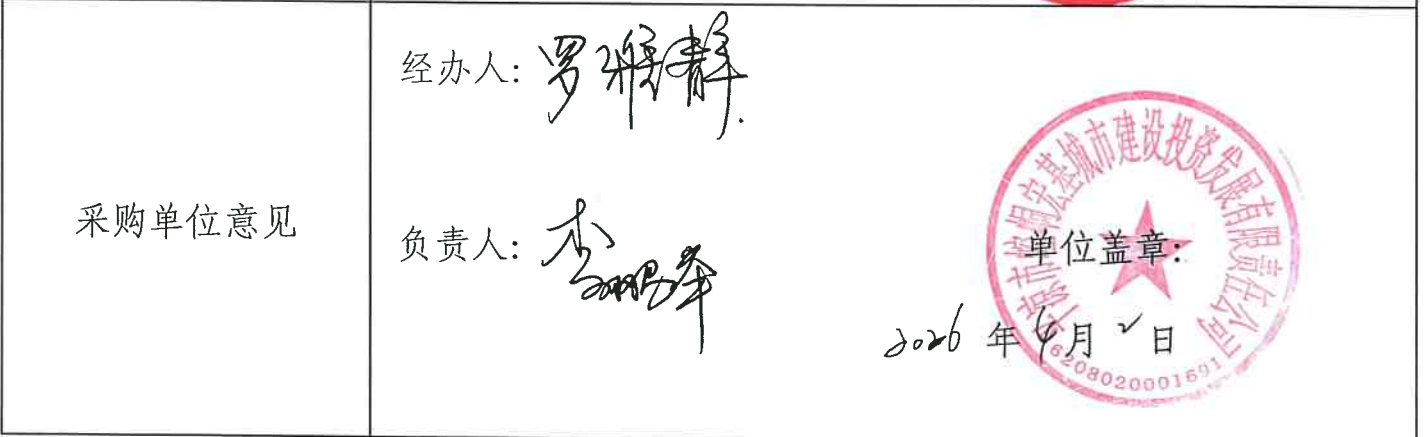 采购单位意见
经办人: 罗雅静
负责人: 李
单位盖章:
2026 年 4 月 2 日
平凉市崆峒宏基城市建设投资发展有限责任公司
6208020001691